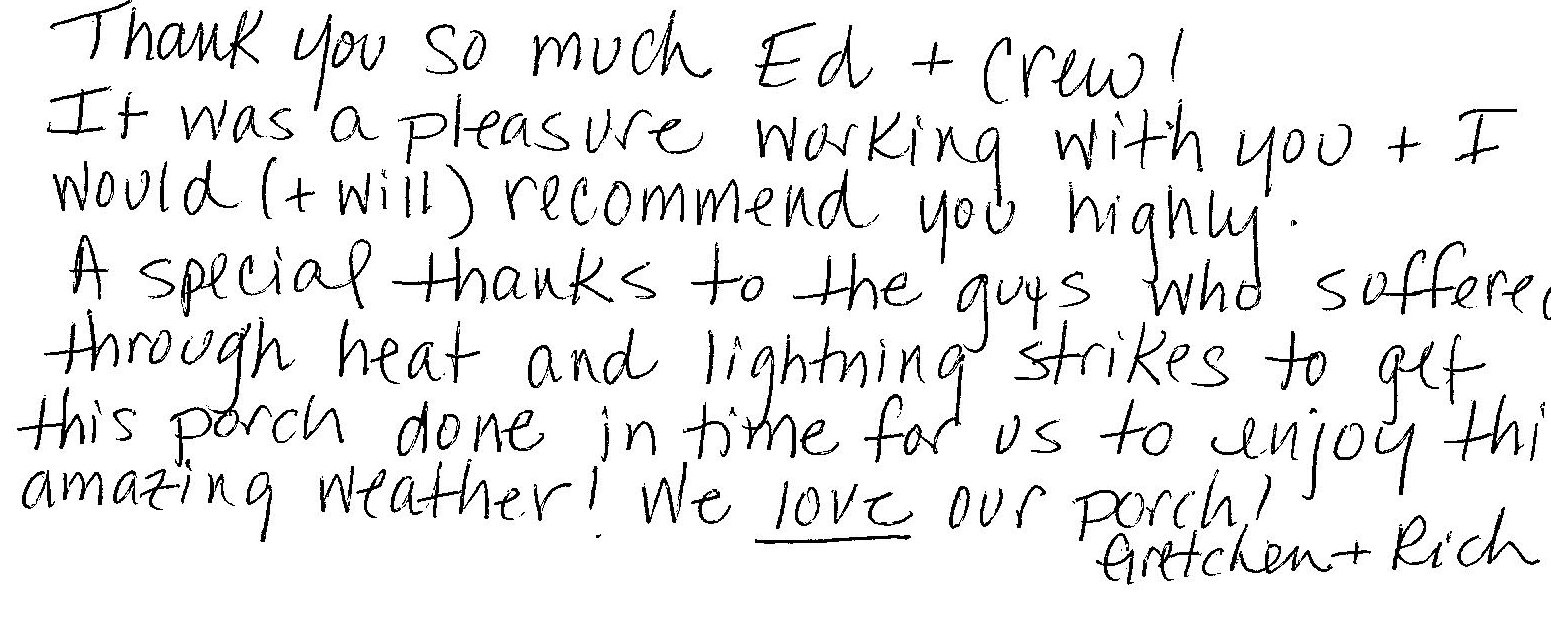 Thank you so much Ed + Crew!
It was a pleasure working with you + I
would (+ will) recommend you highly.
A special thanks to the guys who suffere
through heat and lightning strikes to get
this porch done in time for us to enjoy thi
amazing weather! We love our porch!
Gretchen + Rich